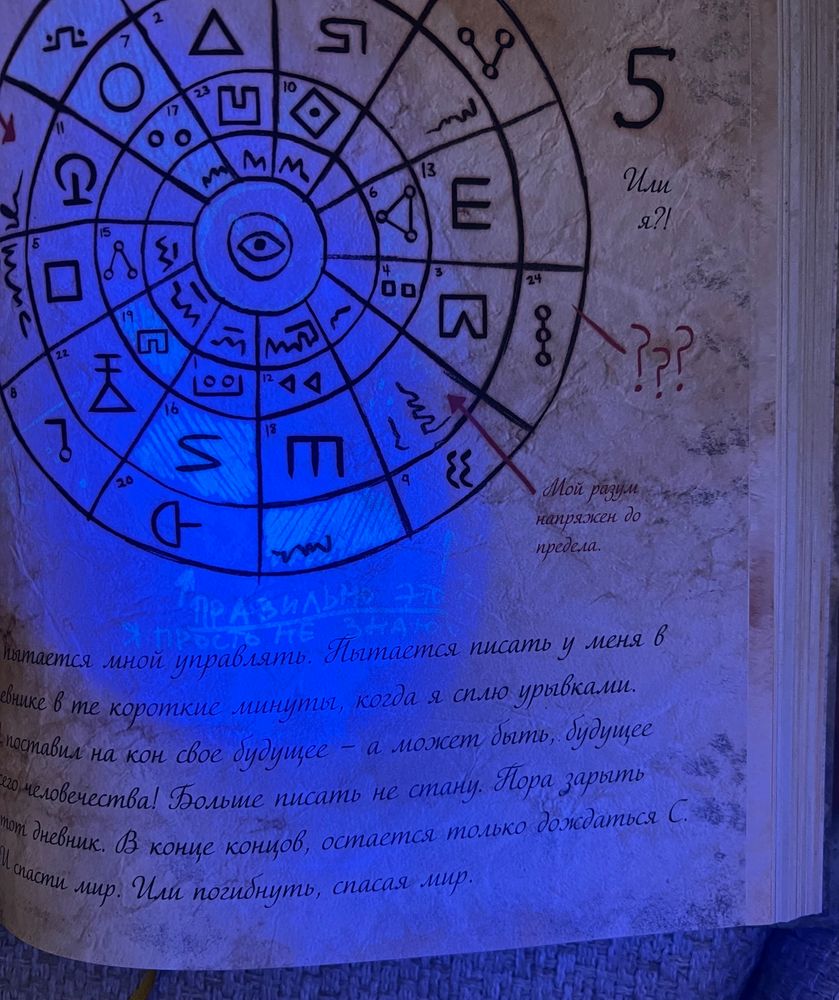 2
7
23
10
17
11
13
6
5
15
4
3
24
19
22
1
12
8
16
18
20
9
5
Или
я?!
???
Мой разум
напряжен до
предела.
ПРАВИЛЬНО ЭТО
Я ПРОСТО НЕ ЗНАЮ
пытается мной управлять. Пытается писать у меня в
евнике в те короткие минуты, когда я сплю урывками.
поставил на кон свое будущее – а может быть, будущее
сего человечества! Больше писать не стану. Пора зарыть
тот дневник. В конце концов, остается только дождаться С.
И спасти мир. Или погибнуть, спасая мир.